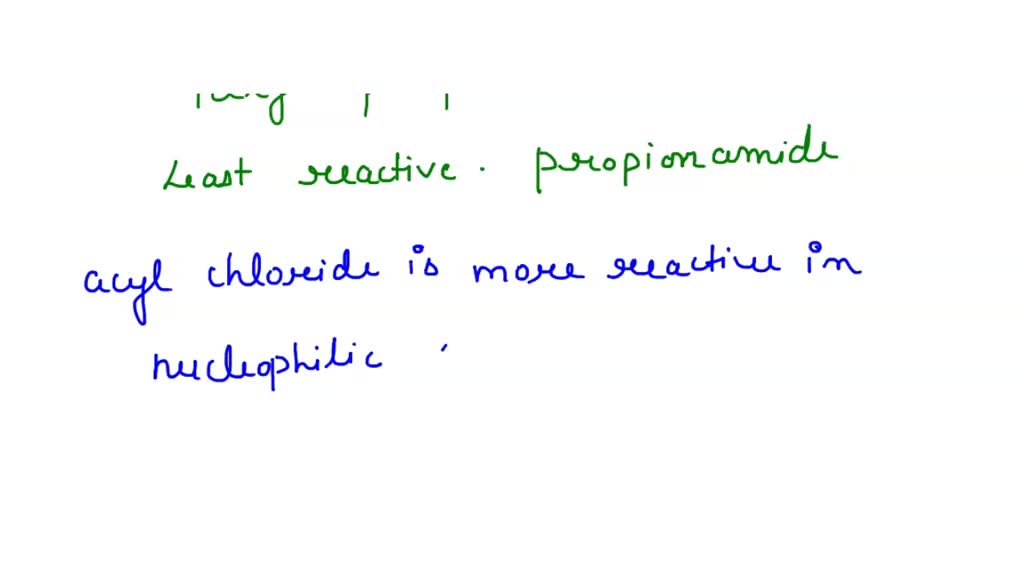 Least reactive. propionamide
acyl chloride is more reactive in
nucleophilic